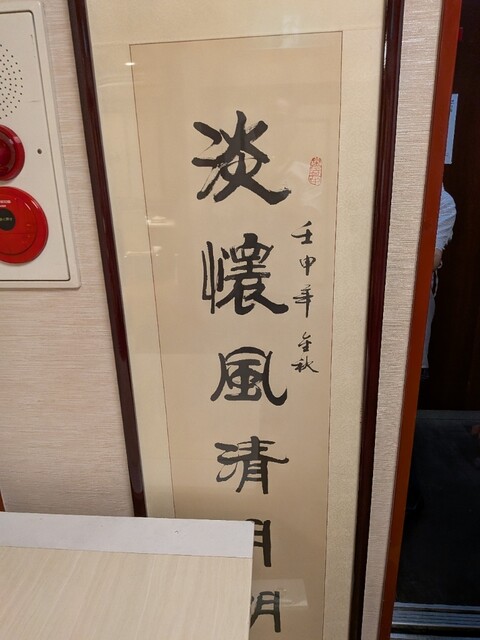 壬申年 金秋
淡懷風清月